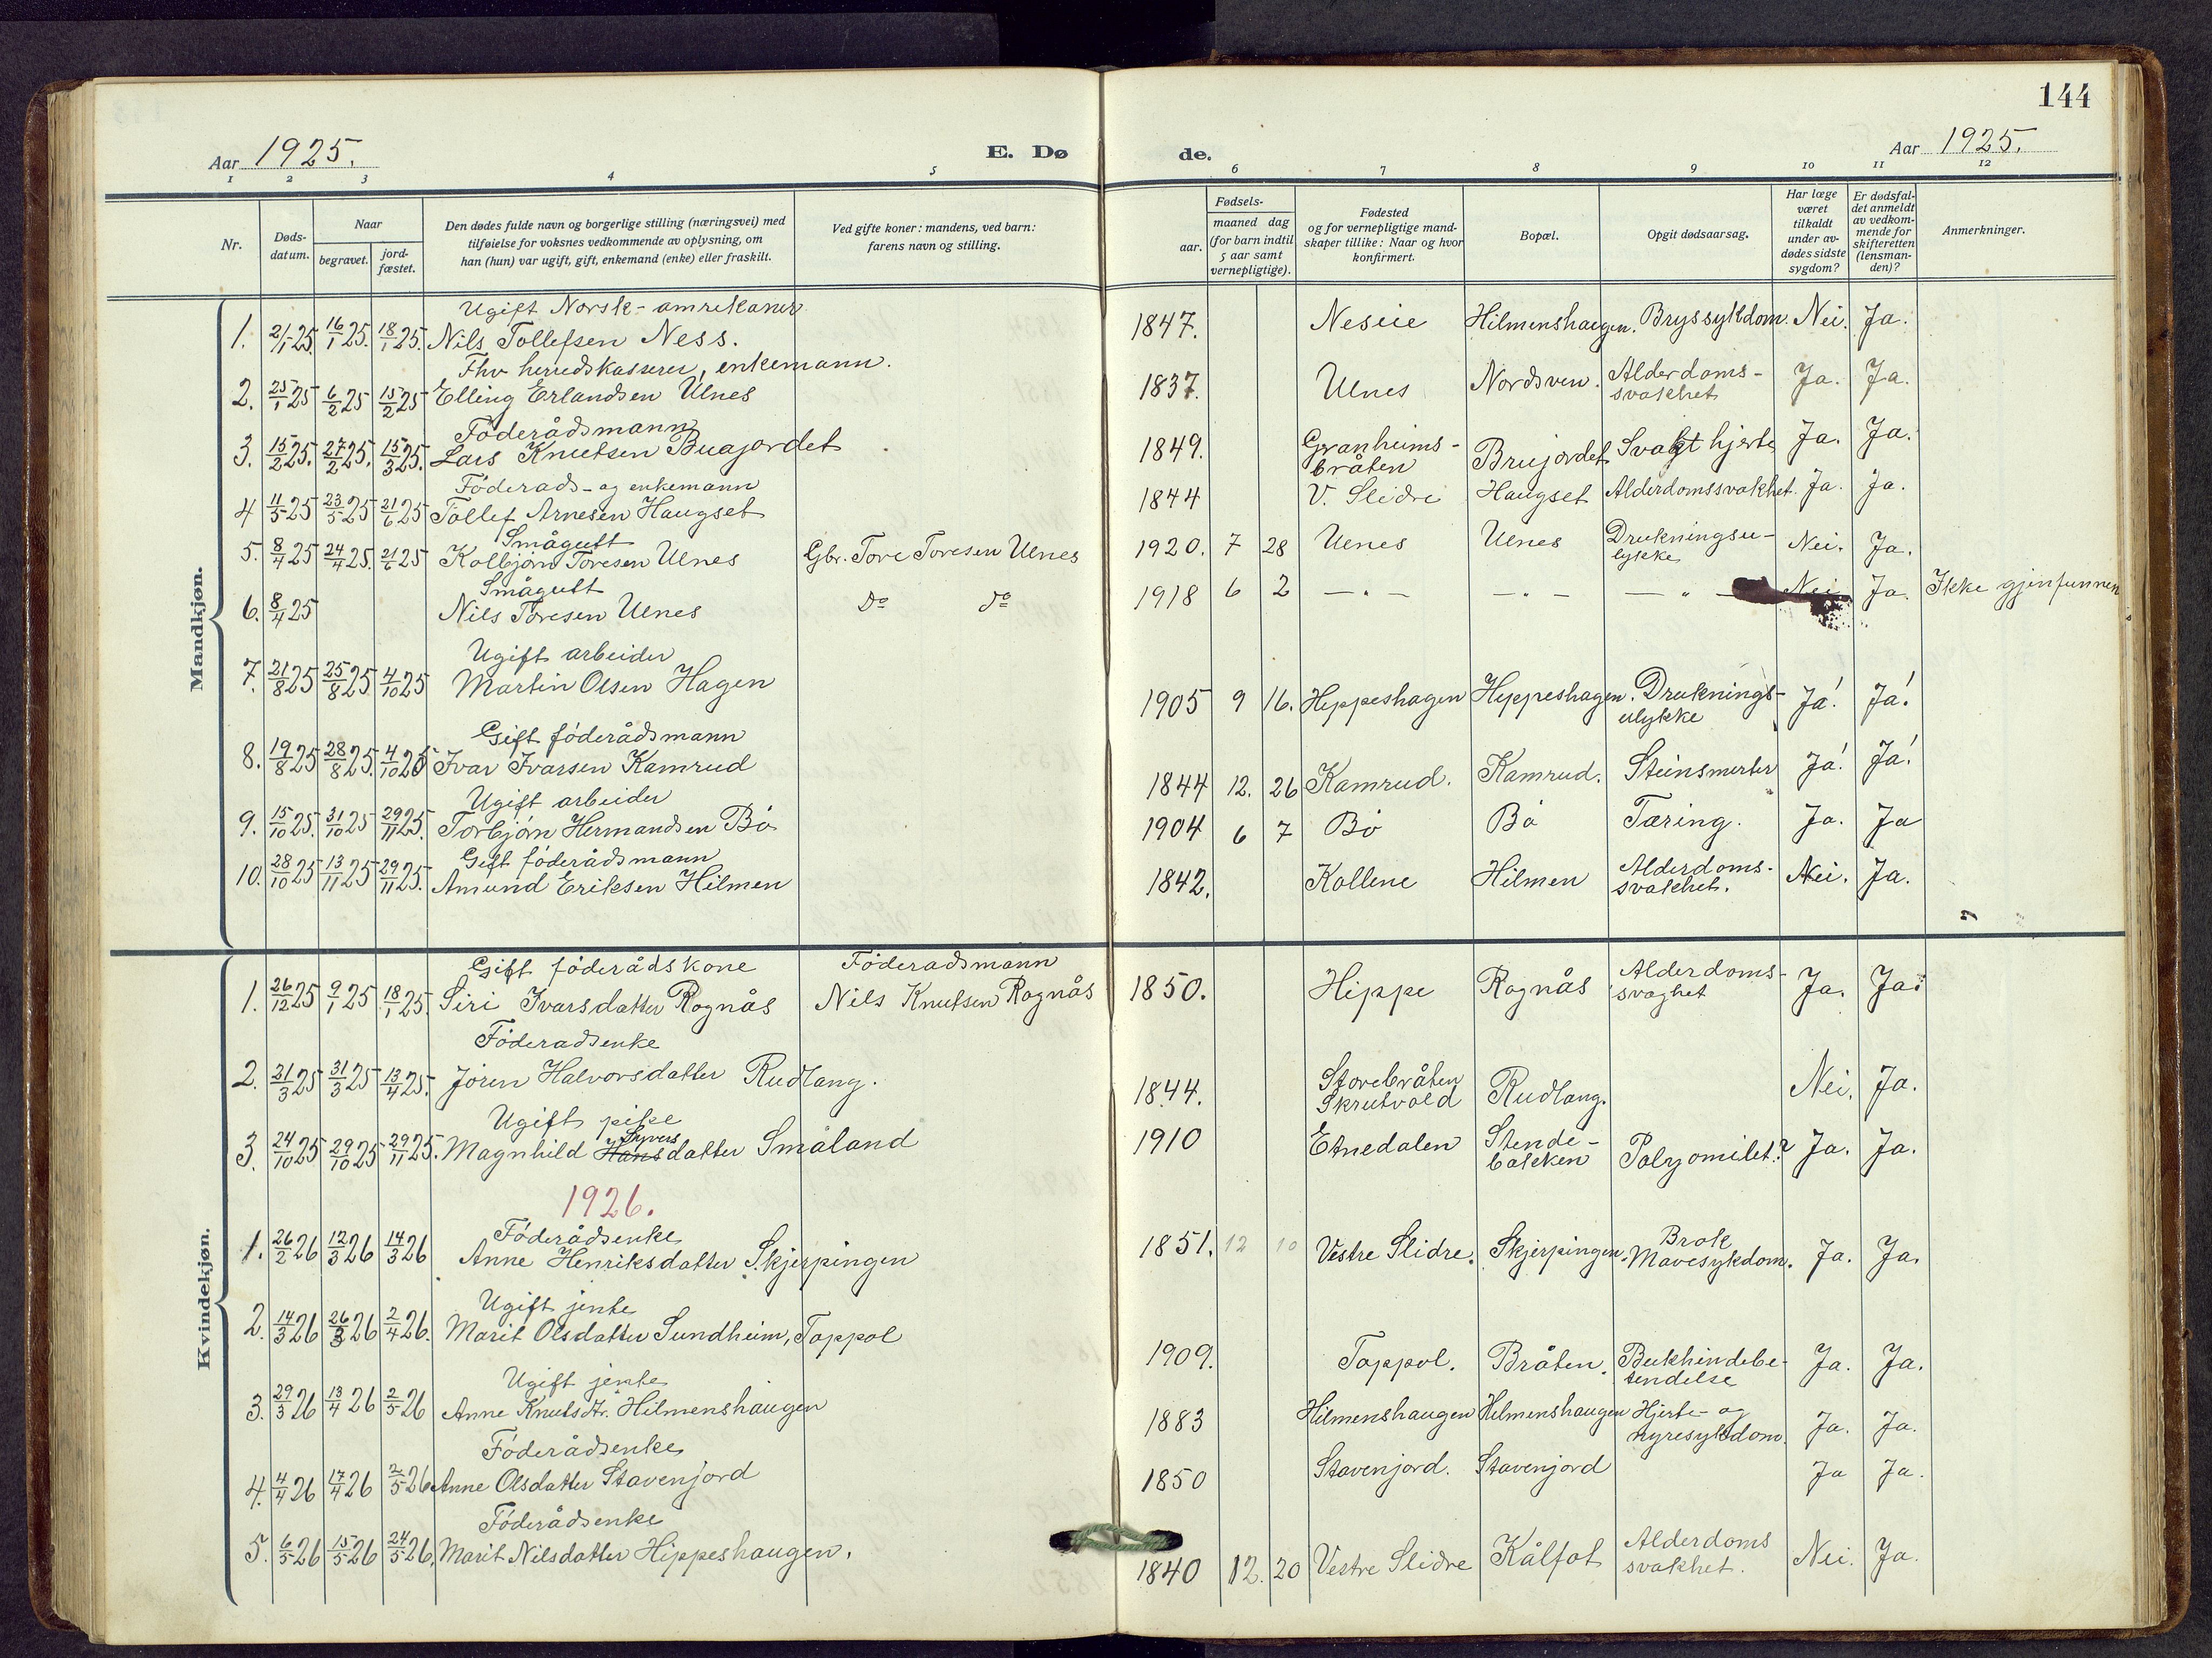 144
Aar 1925.
E. Dø
de.
Aar 1925.
1 2 3 4 5 6 7 8 9 10 11 12
Nr.
Døds-
datum.
Naar
begravet.
jord-
fæstet.
Den dødes fulde navn og borgerlige stilling (næringsvei) med
tilføielse for voksnes vedkommende av oplysning, om
han (hun) var ugift, gift, enkemand (enke) eller fraskilt.
Ved gifte koner: mandens, ved barn:
farens navn og stilling.
Fødsels-
aar.
maaned dag
(for barn indtil
5 aar samt
vernepligtige).
Fødested
og for vernepligtige mand-
skaper tillike: Naar og hvor
konfirmert.
Bopæl.
Opgit dødsaarsag.
Har læge
været
tilkaldt
under av-
dødes sidste
sygdom?
Er dødsfal-
det anmeldt
av vedkom-
mende for
skifteretten
(lensman-
den)?
Anmerkninger.
Mandkjøn.
Ugift Norsk-amrekaner
1. 2/1 25. 16/1 25. 18/1 25. Nils Tollefsen Ness. 1847. Neseie Hilmenshaugen. Bryssykdom. Nei. Ja.
Fhv herredskasserer, enkemann.
2. 25/1 25 6/2 25 15/2 25 Elling Erlandsen Ulnes 1837. Ulnes Nordsven. Alderdoms-
svakhet Ja. Ja.
Föderådsmann
3. 15/2 25. 27/2 25. 15/3 25. Lars Knutsen Buajordet 1849. Granheims-
bråten Brujordet Svakt hjerte Ja. Ja.
Föderads- og enkemann
4 11/5 25 23/5 25 21/6 25 Tollef Arnesen Haugset 1844 V. Slidre Haugset Alderdomssvakhet. Ja. Ja.
Smågutt
5. 8/4 25 24/4 25. 21/6 25 Kolbjørn Toresen Ulnes Gbr. Tore Toresen Ulnes 1920. 7 28 Ulnes Ulnes Drukningsu-
lykke Nei. Ja.
Smågutt
6. 8/4 25 Nils Toresen Ulnes Do do 1918 6 2 — " — — " — — " — Nei Ja. Ikke gjenfunnen
Ugift arbeider
7. 21/8 25 25/8 25 4/10 25 Martin Olsen Hagen 1905 9 16. Hippeshagen Hippeshagen. Druknings-
ulykke Ja! Ja!
Gift föderådsmann
8. 19/8 25 28/8 25. 4/10 25 Ivar Ivarsen Kamrud 1844 12. 26 Kamrud. Kamrud. Steinsmerter Ja! Ja!
Ugift arbeider
9. 15/10 25. 31/10 25 29/11 25. Torbjörn Hermandsen Bö 1904 6 7 Bö Bö Tæring. Ja. Ja
Gift föderådsmann
10. 28/10 25 13/11 25 29/11 25. Amund Eriksen Hilmen 1842. Kollene Hilmen Alderdoms-
svakhet. Nei. Ja.
Kvindekjøn.
Gift föderådskone Föderadsmann
1. 26/12 25 9/1 25 18/1 25. Siri Ivarsdatter Rognås Nils Knutsen Rognås 1850. Hippe Rognås Alderdoms-
svaghet Ja. Ja.
Föderadsenke
2. 21/3 25 31/3 25 13/4 25. Jören Halvorsdatter Rudlang. 1844. Storebråten
Skrutvold Rudlang. Nei. Ja.
Ugift pike
Syvers
3. 24/10 25 29/10 25 29/11 25. Magnhild Hansdatter Småland 1910 Etnedalen Stende-
bakken Polyomilet? Ja. Ja.
1926.
Föderådsenke
1. 26/2 26 12/3 26 14/3 26 Anne Henriksdatter Skjerpingen 1851. 12 10 Vestre Slidre. Skjerpingen. Brok
Mavesykdom. Ja. Ja.
Ugift jente
2. 14/3 26 26/3 26 2/4 26. Marit Olsdatter Sundheim, Toppol 1909. Toppol. Bråten. Bukhindebe-
tendelse Ja. Ja.
Ugift jente
3. 29/3 26 13/4 26 2/5 26 Anne Knutsdtr. Hilmenshaugen 1883 Hilmenshaugen Hilmenshaugen Hjerte- og
nyresykdom. Ja. Ja.
Föderådsenke
4. 4/4 26 17/4 26 2/5 26 Anne Olsdatter Stavenjord 1850 Stavenjord. Stavenjord Ja Ja.
Föderådsenke
5. 6/5 26 15/5 26 24/5 26. Marit Nilsdatter Hippeshaugen. 1840 12. 20 Vestre Slidre Kålfot Alderdoms
svakhet. Nei. Ja.